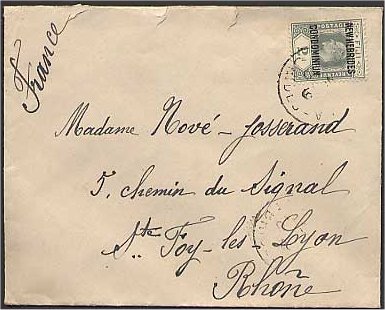 France
POSTAGE
NEW HEBRIDES
CONDOMINIUM
FIJI
Madame Nové-Josserand
5, chemin du Signal
Ste Foy-les-Lyon
Rhône